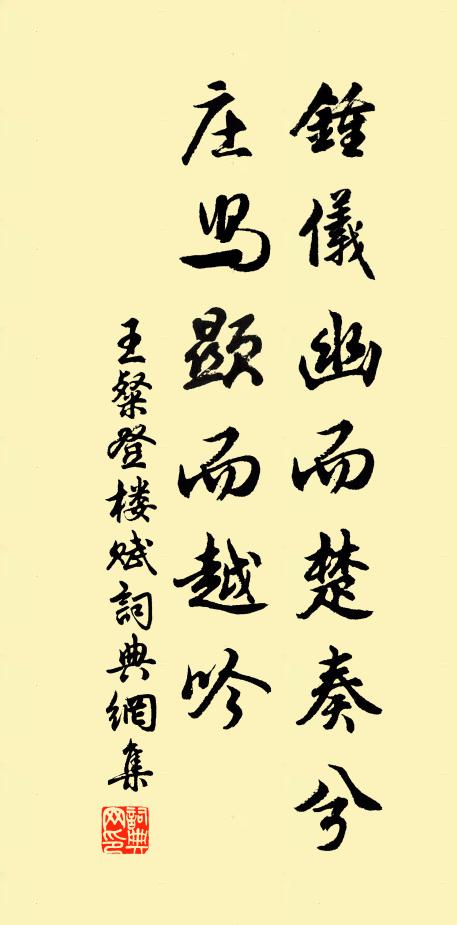 鍾儀幽而楚奏兮
庄舄顯而越吟
王粲登楼賦詞典網集
詞典网印